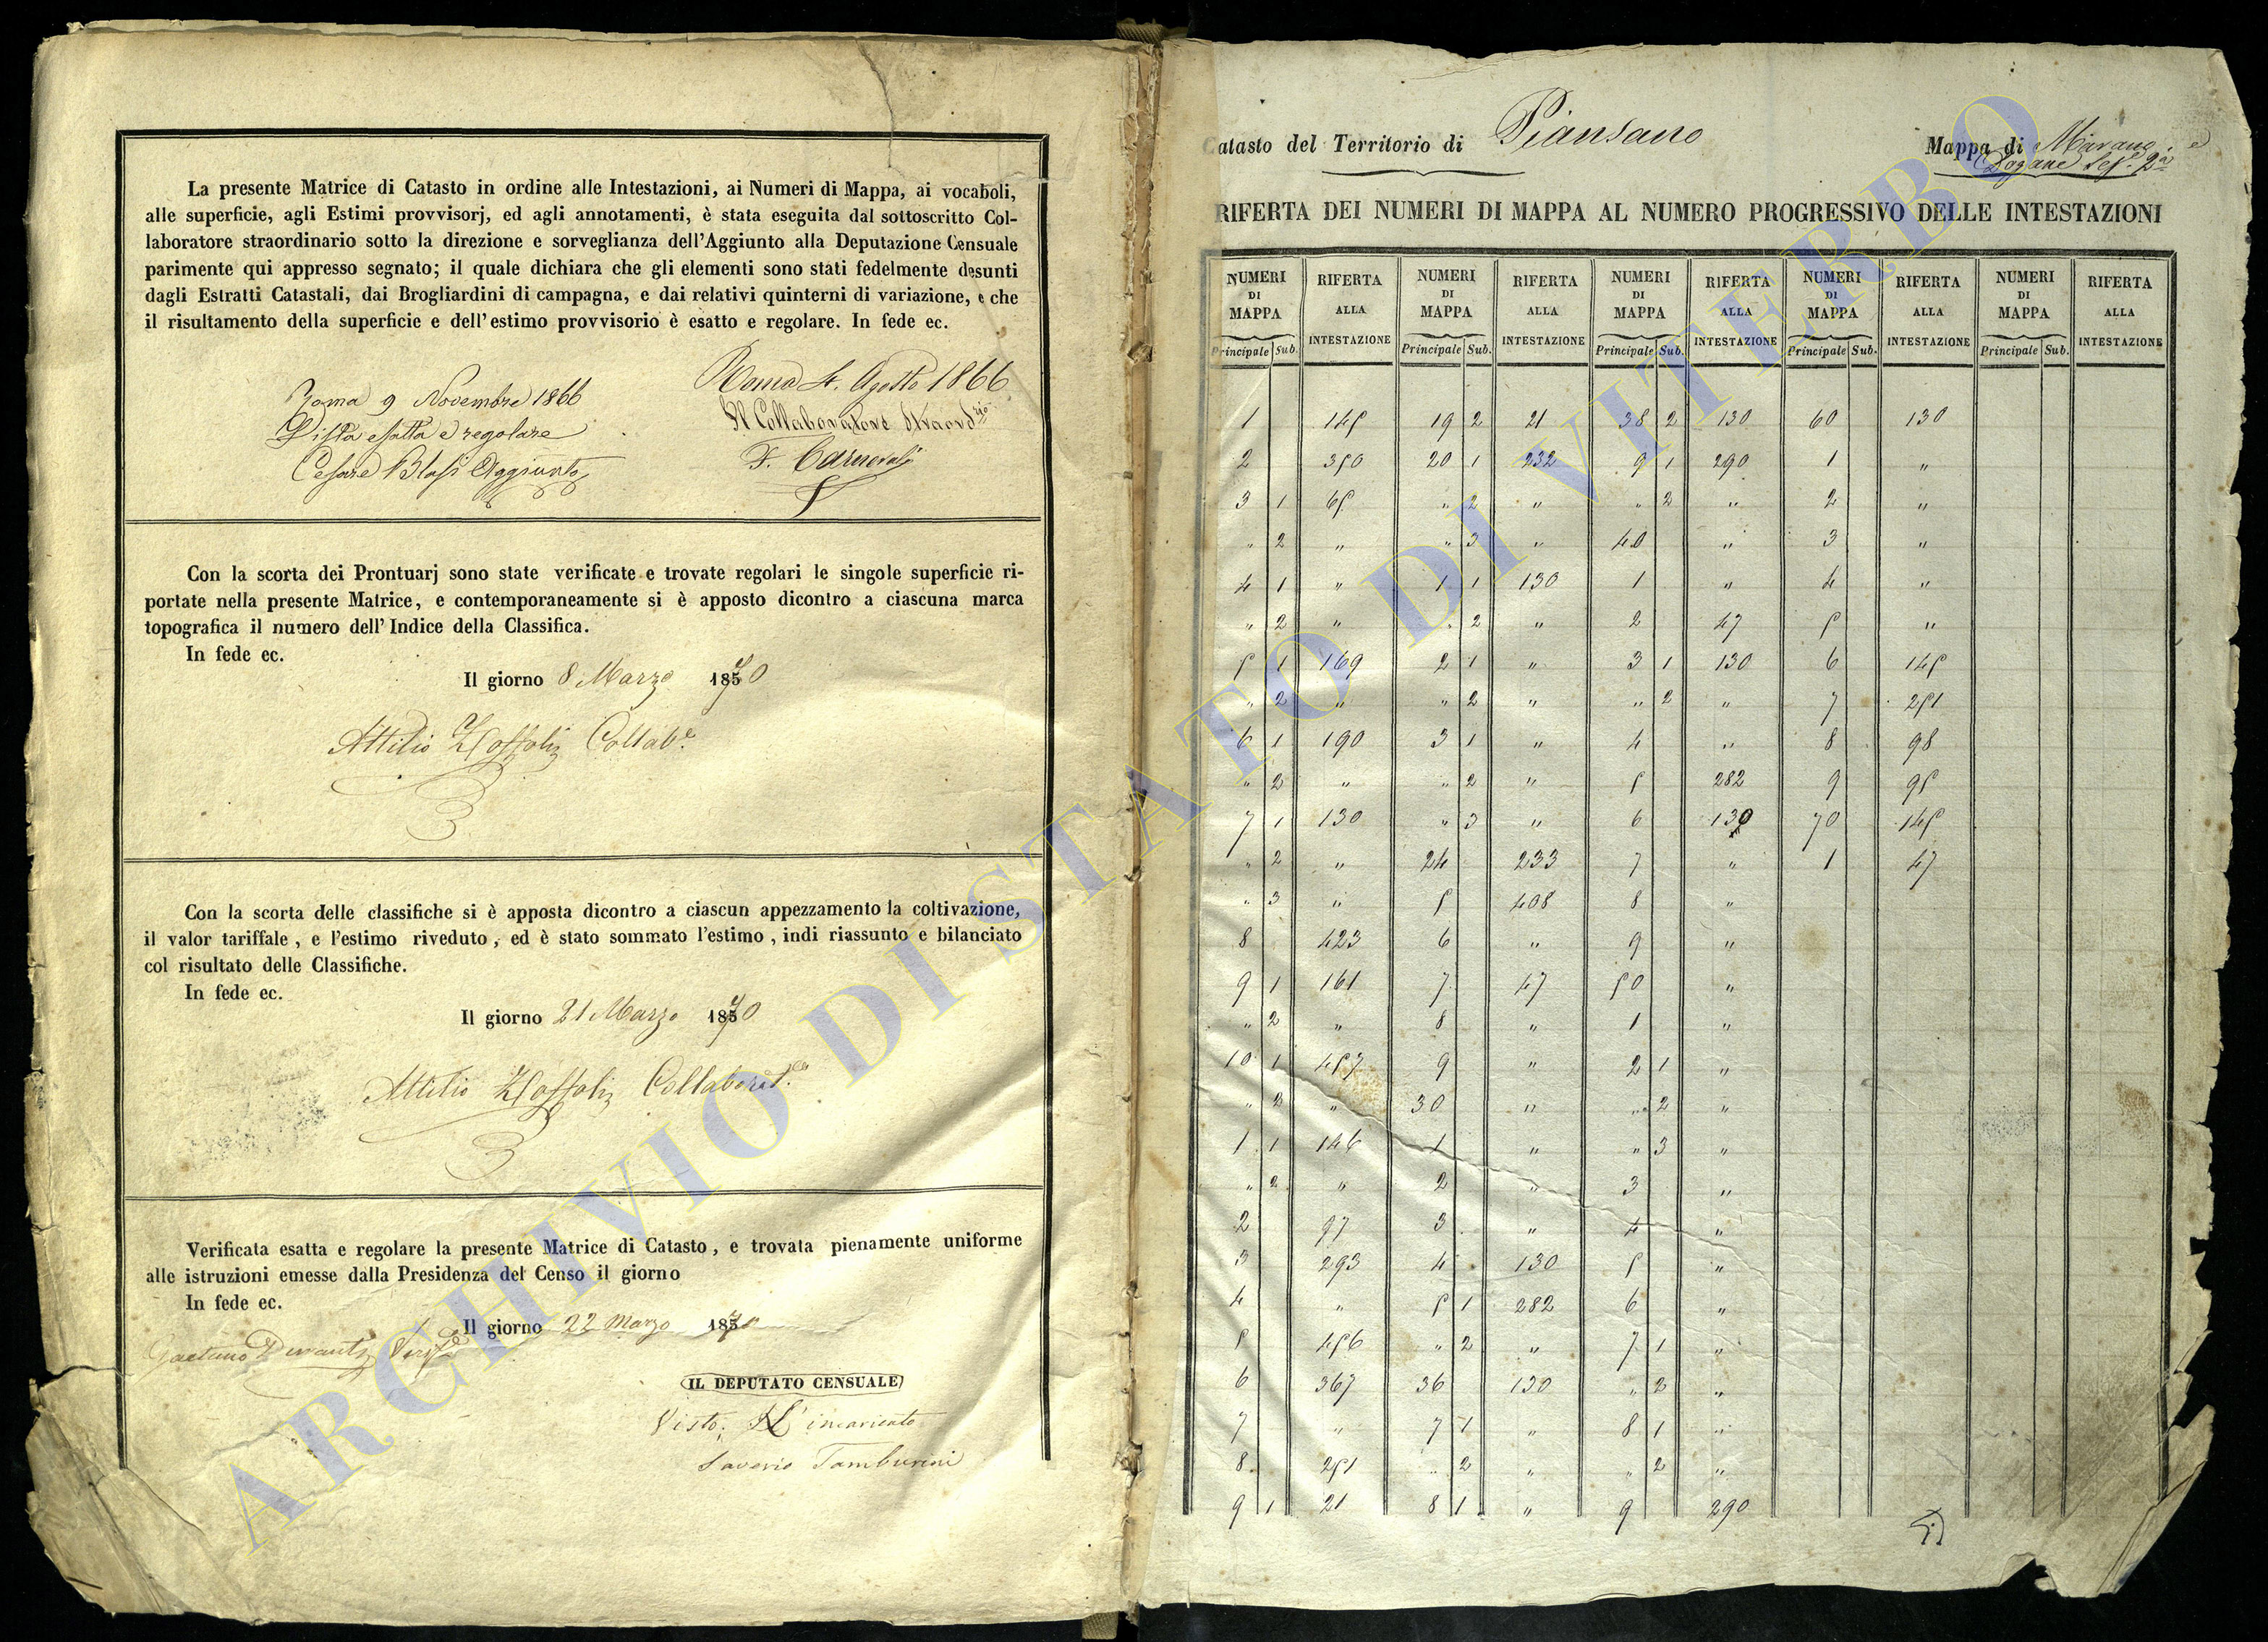 La presente Matrice di Catasto in ordine alle Intestazioni, ai Numeri di Mappa, ai vocaboli,
alle superficie, agli Estimi provvisorj, ed agli annotamenti, è stata eseguita dal sottoscritto Col-
laboratore straordinario sotto la direzione e sorveglianza dell'Aggiunto alla Deputazione Censuale
parimente qui appresso segnato; il quale dichiara che gli elementi sono stati fedelmente desunti
dagli Estratti Catastali, dai Brogliardini di campagna, e dai relativi quinterni di variazione, e che
il risultamento della superficie e dell'estimo provvisorio è esatto e regolare. In fede ec.
Roma 4. Agosto 1866
Il Collaboratore Straord.rio
F. Carnevali
Roma 9 Novembre 1866
Vista esatta e regolare
Cesare Blasi Aggiunto
Con la scorta dei Prontuarj sono state verificate e trovate regolari le singole superficie ri-
portate nella presente Matrice, e contemporaneamente si è apposto dicontro a ciascuna marca
topografica il numero dell' Indice della Classifica.
In fede ec.
Il giorno 8 Marzo 1870
Attilio
Con la scorta delle classifiche si è apposta dicontro a ciascun appezzamento la coltivazione,
il valor tariffale, e l'estimo riveduto, ed è stato sommato l'estimo, indi riassunto e bilanciato
col risultato delle Classifiche.
In fede ec.
Il giorno 21 Marzo 1870
Attilio
Verificata esatta e regolare la presente Matrice di Catasto, e trovata pienamente uniforme
alle istruzioni emesse dalla Presidenza del Censo il giorno
In fede ec.
Il giorno 22 Marzo 1870
Gaetano
IL DEPUTATO CENSUALE
Visto. L'incaricato
Saverio Tamburini
Catasto del Territorio di Piansano
Mappa di Marano e
Dogane Sez. 2a
RIFERTA DEI NUMERI DI MAPPA AL NUMERO PROGRESSIVO DELLE INTESTAZIONI
NUMERI DI MAPPA RIFERTA ALLA INTESTAZIONE NUMERI DI MAPPA RIFERTA ALLA INTESTAZIONE NUMERI DI MAPPA RIFERTA ALLA INTESTAZIONE NUMERI DI MAPPA RIFERTA ALLA INTESTAZIONE NUMERI DI MAPPA RIFERTA ALLA INTESTAZIONE
Principale Sub. Principale Sub. Principale Sub. Principale Sub. Principale Sub.
1 145 19 2 21 38 2 130 60 130
2 350 20 1 232 9 1 290 1 "
3 1 65 " 2 " " 2 " 2 "
" 2 " " 3 " 40 " 3 "
4 1 " 1 1 130 1 " 4 "
" 2 " " 2 " 2 47 5 "
5 1 169 2 1 " 3 1 130 6 145
" 2 " " 2 " " 2 " 7 251
6 1 190 3 1 " 4 " 8 98
" 2 " " 2 " 5 282 9 95
7 1 130 " 3 " 6 130 70 145
" 2 " 24 233 7 " 1 47
" 3 " 5 408 8 "
8 423 6 " 9 "
9 1 161 7 47 50 "
" 2 " 8 " 1 "
10 1 457 9 " 2 1 "
" 2 " 30 " " 2 "
1 1 146 1 " " 3 "
" 2 " 2 " 3 "
2 97 3 " 4 "
3 293 4 130 5 "
4 " 5 1 282 6 "
5 456 " 2 " 7 1 "
6 367 36 130 " 2 "
7 " 7 1 " 8 1 "
8 251 " 2 " " 2 "
9 1 21 8 1 " 9 290
ARCHIVIO DI STATO DI VITERBO